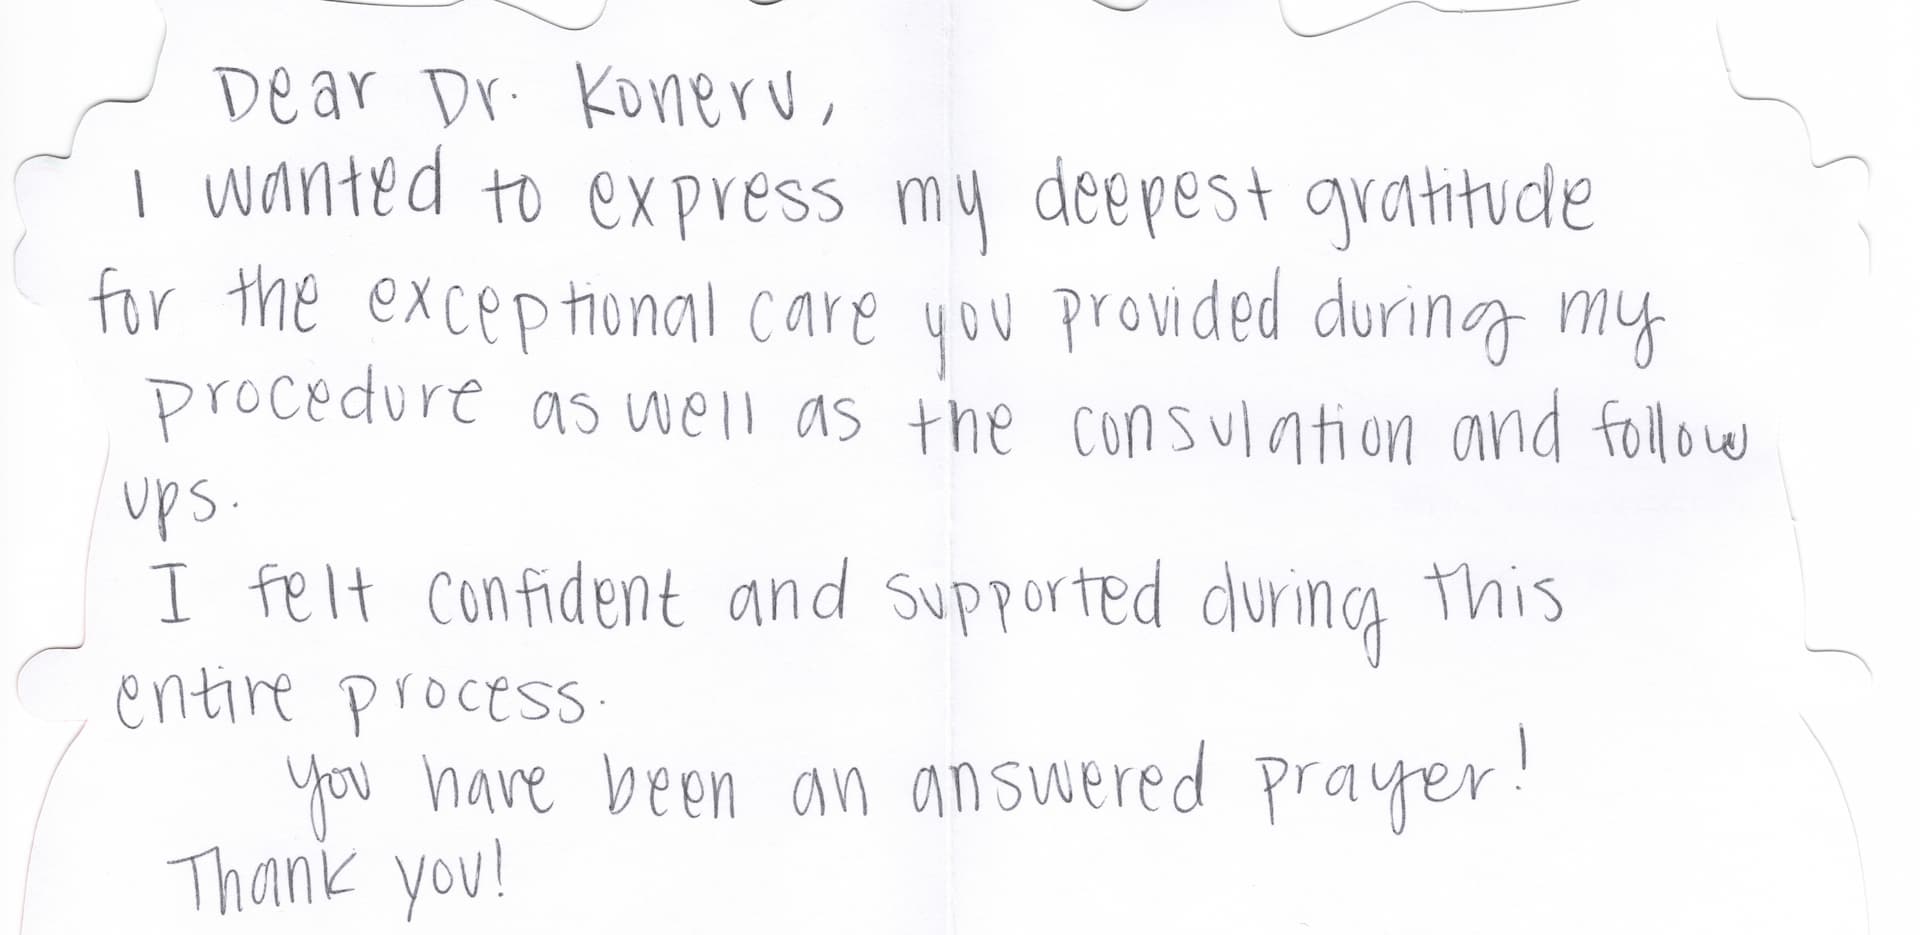 Dear Dr. Koneru,
I wanted to express my deepest gratitude
for the exceptional care you provided during my
procedure as well as the consulation and follow
ups.
I felt confident and supported during this
entire process.
You have been an answered prayer!
Thank you!